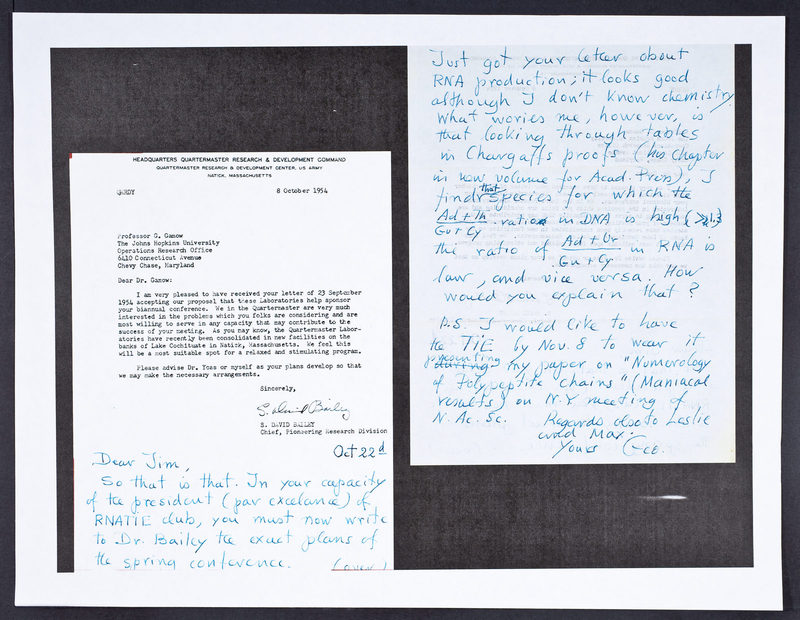 HEADQUARTERS QUARTERMASTER RESEARCH & DEVELOPMENT COMMAND
QUARTERMASTER RESEARCH & DEVELOPMENT CENTER, US ARMY
NATICK, MASSACHUSETTS
8 October 1954
Professor G. Gamow
The Johns Hopkins University
Operations Research Office
6410 Connecticut Avenue
Chevy Chase, Maryland
Dear Dr. Gamow:
I am very pleased to have received your letter of 23 September
1954 accepting our proposal that these Laboratories help sponsor
your biannual conference. We in the Quartermaster are very much
interested in the problem which you folks are considering and are
most willing to serve in any capacity that may contribute to the
success of your meeting. As you may know, the Quartermaster Labor-
atories have recently been consolidated in new facilities on the
banks of Lake Cochituate in Natick, Massachusetts. We feel this
will be a most suitable spot for a relaxed and stimulating program.
Please advise Dr. Yoss or myself as your plans develop so that
we may make the necessary arrangements.
Sincerely,
S. David Bailey
S. DAVID BAILEY
Chief, Pioneering Research Division
Oct 22d
Dear Jim,
So that is that. In your capacity
of the president (par excelance) of
RNATIE club, you must now write
to Dr. Bailey the exact plans of
the spring conference.
(over)
Just got your letter about
RNA production; it looks good
although I don't know chemistry.
What wories me, however, is
that looking through tables
in Chargaffs proofs (his chapter
in new volume for Acad. Press), I
find that species for which the
Ad + Th
Gu + Cy
ratio in DNA is high
the ratio of
Ad + Ur
Gu + Cy
in RNA is
low, and vice versa. How
would you explain that?
P.S. I would like to have
the TIE by Nov. 8 to wear it
presenting
during my paper on "Numerology
of Polypeptite chains" (Maniacal
results) on N.Y meeting of
N. Ac. Sc. Regards also to Leslie
and Mar.
Yours Geo.